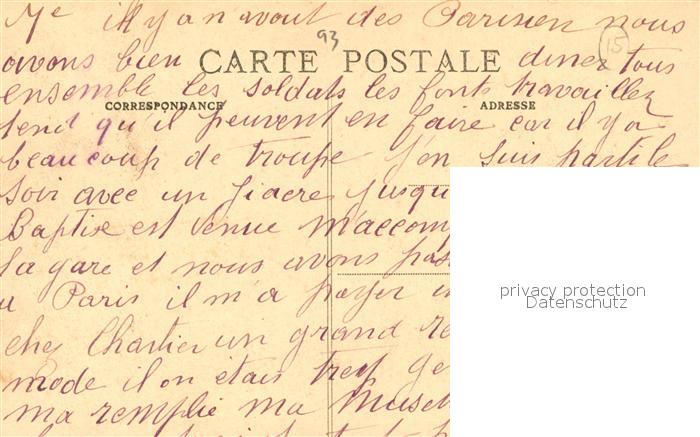 il y a avait des Parisien nous
93
15
avons bien CARTE POSTALE diner tous
ensemble les soldats les font travailler
CORRESPONDANCE ADRESSE
tend qu'il peuvent en faire car il y a
beaucoup de troupe j'en suis partit le
soir avec un fiacre jusqu
Baptise est venue m'accom
la gare et nous avons pas
a Paris il m'a payer
chez Chartier un grand re
mode il on etais tres ge
ma remplie ma Muset
privacy protection
Datenschutz